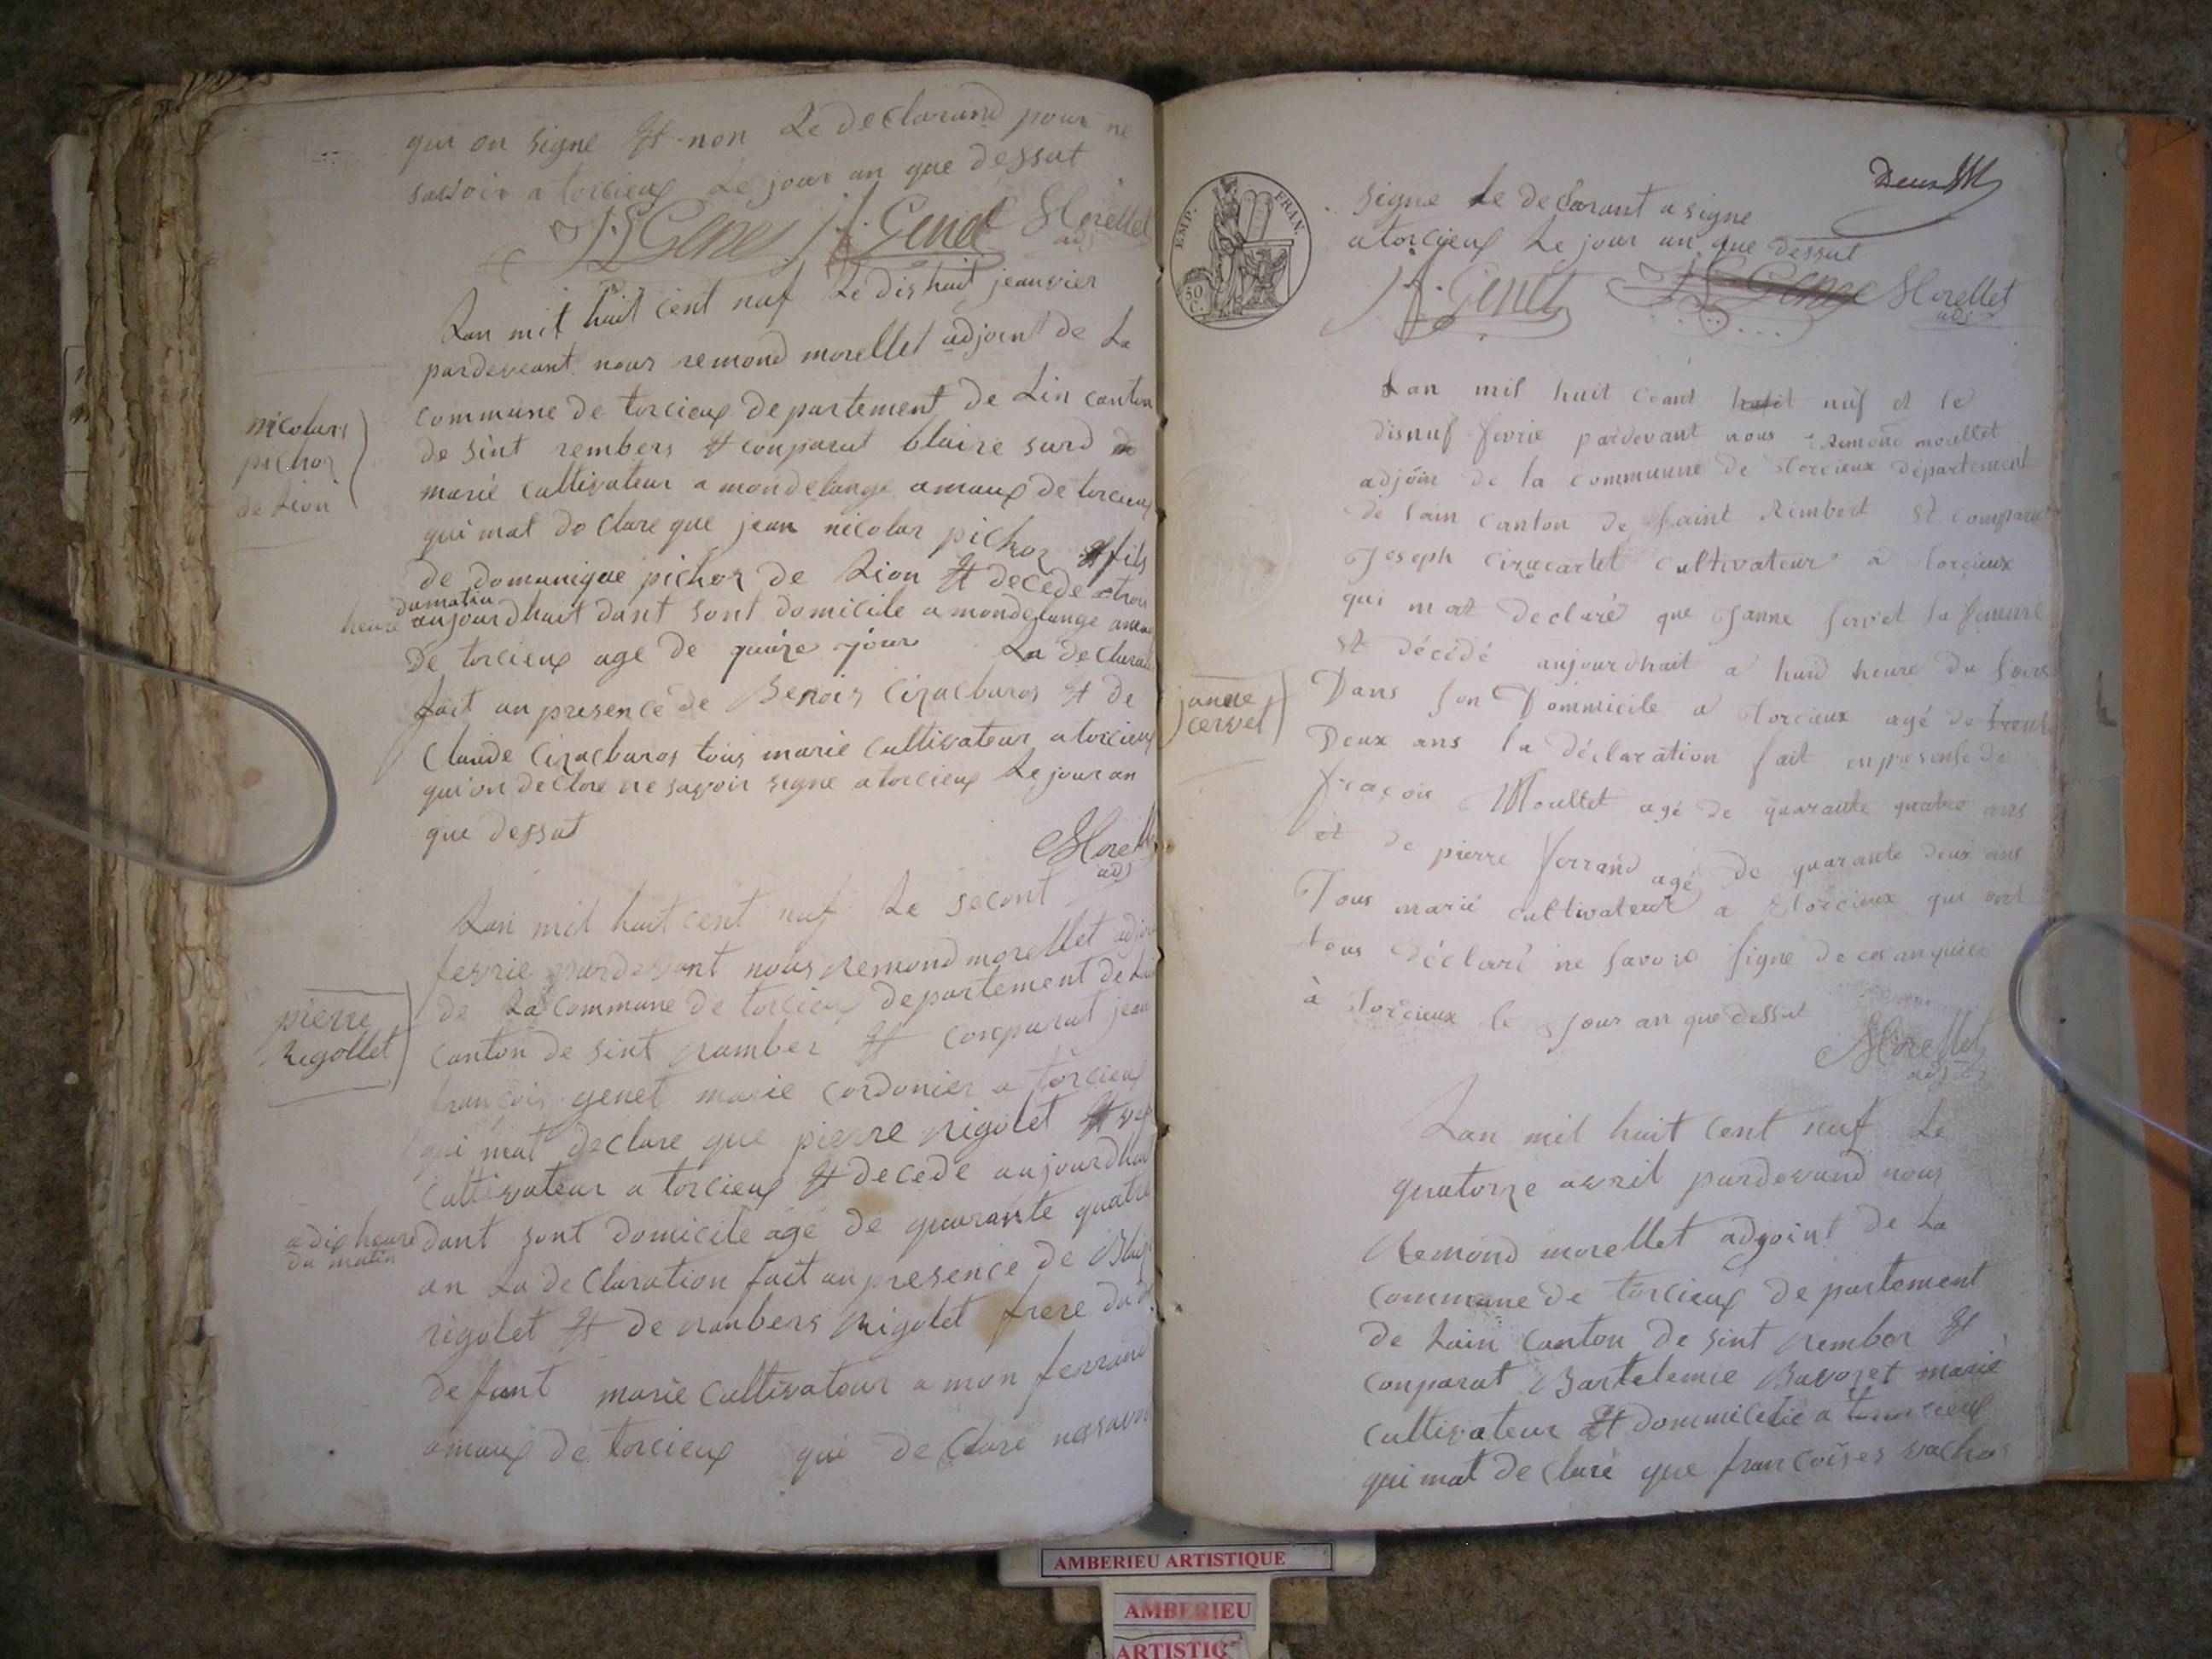 qui on signe et non Le declarand pour ne
savoir a torcieux Le jour an que dessut
Genet
Genet
Morellet
adj
Lan mil huit cent nuf Le dishuit jeanvier
pardeveant nous remond morellet adjoint de La
commune de torcieux departement de Lin canton
de sint rembers et conparut blaise surd
marié cultivateur a mondelange amaux de torcieux
qui mat declare que jean nicolas pichoz fils
de domunique pichoz de Lion et decede a trois
heure du matin
aujourdhuit dant sont domicile a mondelange amaux
De torcieux age de quinze jour La declarat
fait an presence de Benois Cizacbaros et de
Claude Cizacbaros tous marié cultivateur a torcieux
qui on declare ne savoir signe a torcieux Le jour an
que dessut
Morellet
adj
nicolars
pichoz
de Lion
Lan mil huit cent nuf Le secont
fevrie pardevant nous Remond morellet adjoin
de La commune de torcieux departement de Lin
canton de sint ramber et conparut jean
françois genet marie cordonier a torcieux
qui mat declare que pierre rigolet et vef
cultivateur a torcieux et decede aujourdhuit
a dix heure
du matin
dant sont domicile agé de quarante quatre
an La declaration fait an presence de Blaise
rigolet et de ranbers Rigolet frere du d
defunt marié cultivateur a mon ferrand
amaux de torcieux qui declare ne savoir
pierre
Rigollet
Deux
EMP. FRAN.
50 C.
signe Le declarant a signe
a torcieux Le jour an que dessut
Genet
Genet
Morellet
adj
Lan mil huit ceant nuif et le
disnuf fevrie pardevant nous Remond morellet
adjoin de la commune de Torcieux département
de lain canton de saint Rimbert et comparut
Joseph Cizacartet cultivateur a Torcieux
qui mat declaré que Janne servet sa femme
et décédé aujourdhuit a huid heure du soirs
Dans son Dommicile a Torcieux agé de trente
Deux ans la déclaration fait en presense de
fraçois Moullet agé de quarante quatre ans
et de pierre ferrand agé de quarante deux ans
Tous marié cultivateur a Torcieux qui ont
tous déclaré ne savoir signe de ces anquier
à Torcieux le jour an que dessut
Morellet
adj
janne
cervet
Lan mil huit cent nuf Le
quatorze avril pardevand nous
Remond morellet adjoint de La
commune de torcieux departement
de Lain canton de sint rember et
conparut Bartelemie Bavozet marié
cultivateur et dommicilié a torcieux
qui mat declaré que françoises vachos
AMBERIEU ARTISTIQUE
AMBERIEU
ARTISTIQ